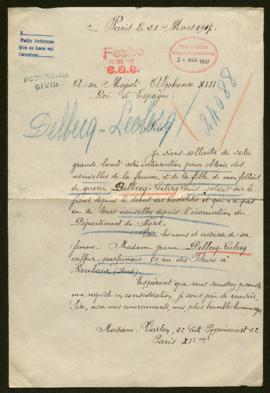 Paris le 21 Mars 1917
Pedir informes
que se hace así
Fecho
e.a.e.
24 NOV 1917
POBLACIÓN
CIVIL
A sa Majesté Alphonse XIII
Roi d'Espagne
Delbecq-Leclercq
24088
Sire,
Je viens solliciter de votre
grande bonté votre intervention pour obtenir des
nouvelles de la femme, et de la fille de mon filleul
de guerre Delbecq-Leclercq soldat sur le
front depuis le début des hostilités et qui n'a pas
eu de leurs nouvelles depuis l'évacuation du
Département du Nord.
les noms et adresse de sa
femme: Madame Delbecq-Leclercq
coiffeur parfumeur 50 rue des
Roubaix (Nord)
Espérant que vous voudrez prendre
ma requête en considération, je vous prie de recevoir,
Sire, avec mes remerciements, mes plus humbles hommages
Madame 22 Cité Popincourt 22
Paris XIe